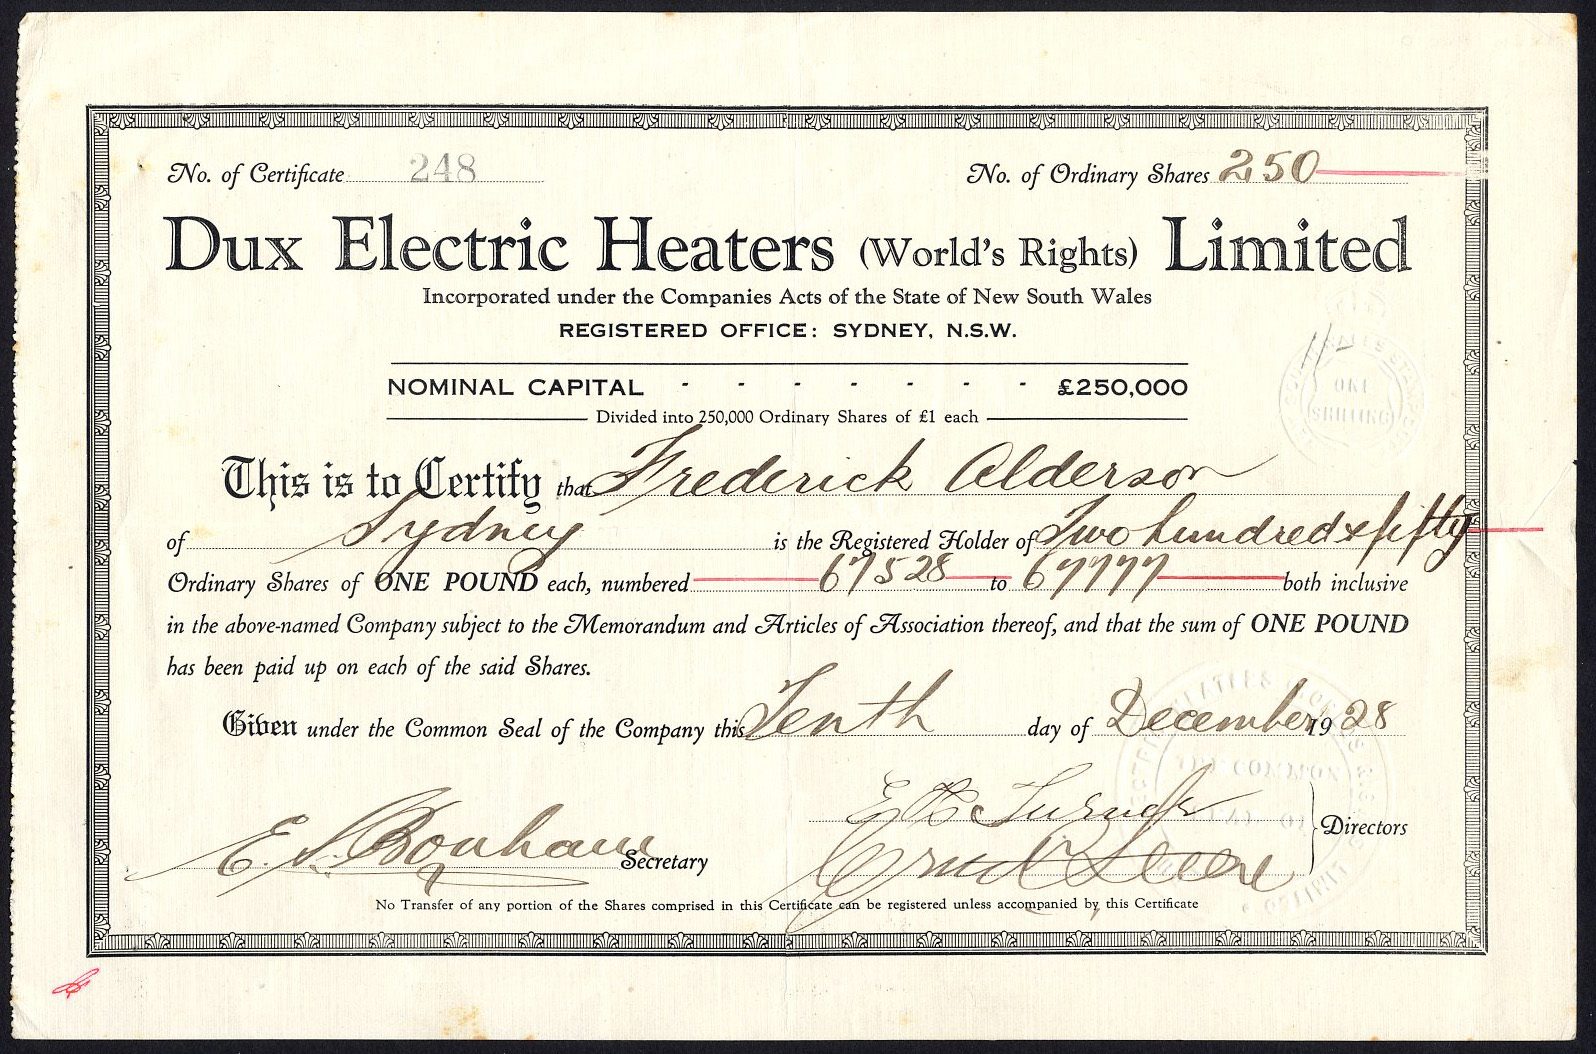 No. of Certificate 248 No. of Ordinary Shares 250
Dux Electric Heaters (World's Rights) Limited
Incorporated under the Companies Acts of the State of New South Wales
REGISTERED OFFICE: SYDNEY, N.S.W.
NOMINAL CAPITAL - - - - - - - £250,000
Divided into 250,000 Ordinary Shares of £1 each
ONE
SHILLING
This is to Certify that Frederick Alderson
of Sydney is the Registered Holder of Two hundred & fifty
Ordinary Shares of ONE POUND each, numbered 67528 to 67777 both inclusive
in the above-named Company subject to the Memorandum and Articles of Association thereof, and that the sum of ONE POUND
has been paid up on each of the said Shares.
Given under the Common Seal of the Company this Tenth day of December 1928
COMMON
E. S. Bonham Secretary
Turner
Directors
No Transfer of any portion of the Shares comprised in this Certificate can be registered unless accompanied by this Certificate